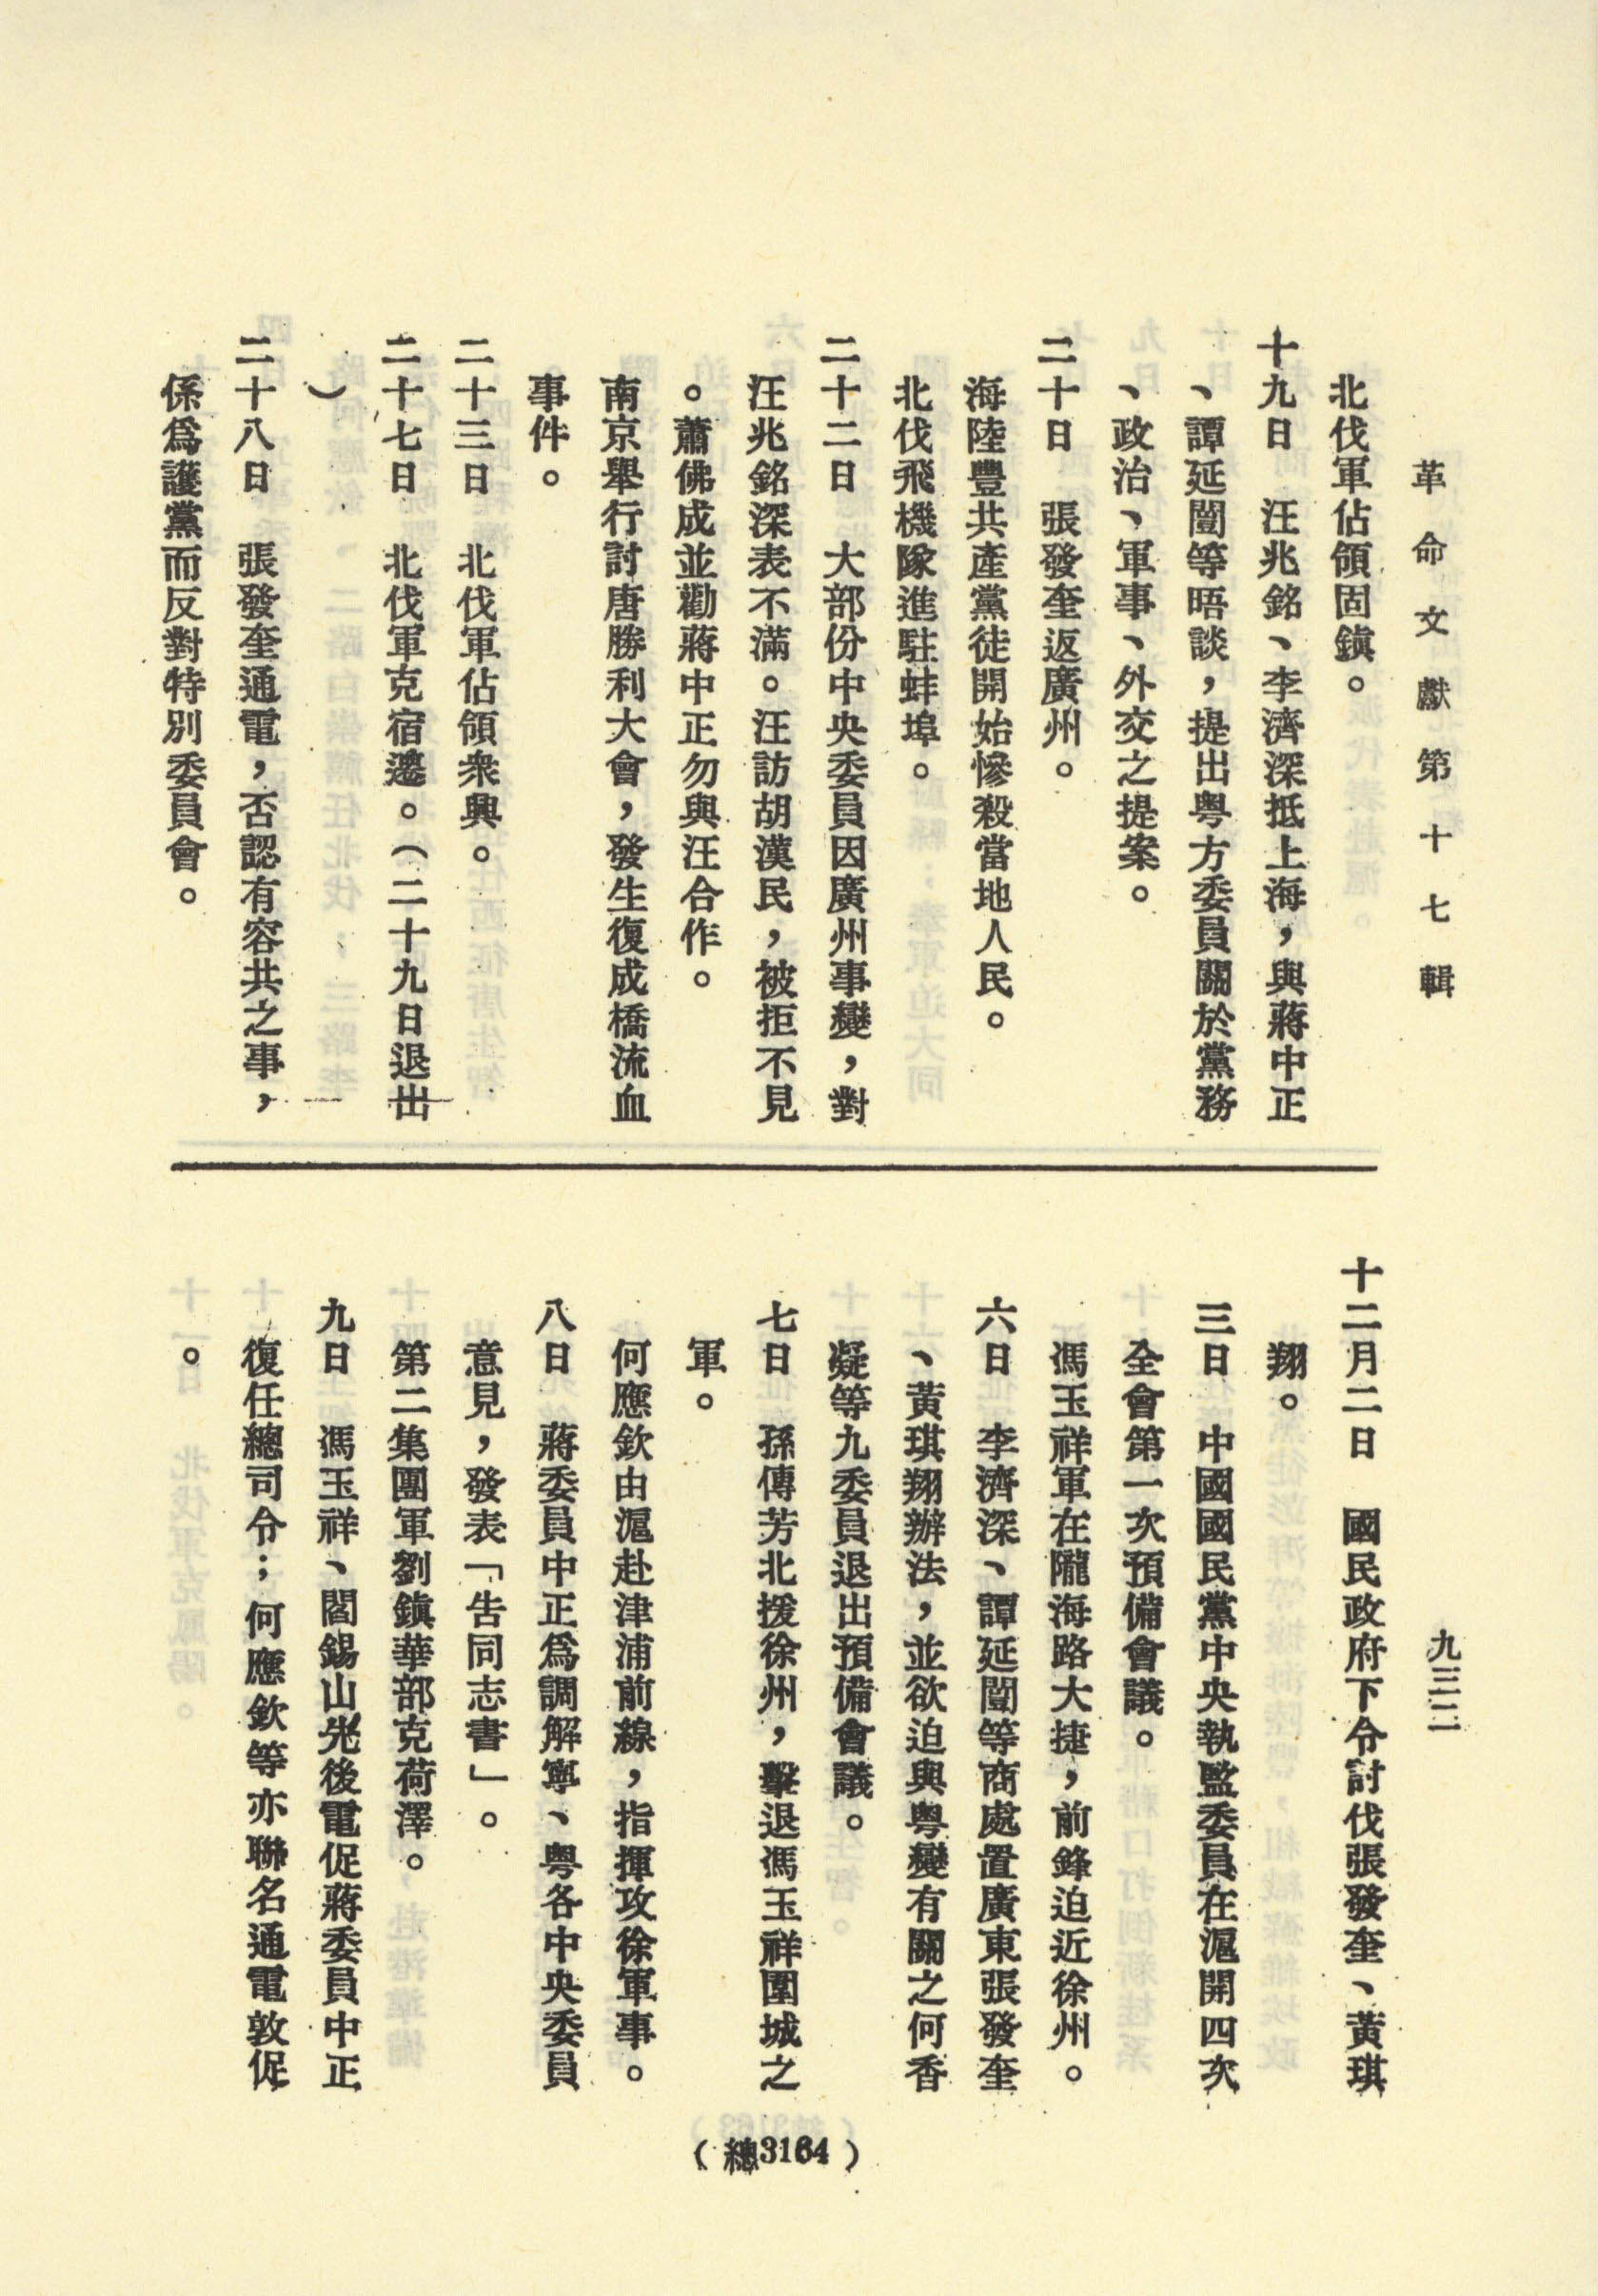 革命文獻第十七輯
九三二
北伐軍佔領固鎭。
十九日　汪兆銘、李濟深抵上海，與蔣中正
、譚延闓等晤談，提出粤方委員關於黨務
、政治、軍事、外交之提案。
二十日　張發奎返廣州。
海陸豐共產黨徒開始慘殺當地人民。
北伐飛機隊進駐蚌埠。
二十二日　大部份中央委員因廣州事變，對
汪兆銘深表不滿。汪訪胡漢民，被拒不見
。蕭佛成並勸蔣中正勿與汪合作。
南京舉行討唐勝利大會，發生復成橋流血
事件。
二十三日　北伐軍佔領衆興。
二十七日　北伐軍克宿遷。（二十九日退出
）
二十八日　張發奎通電，否認有容共之事，
係爲護黨而反對特別委員會。
十二月二日　國民政府下令討伐張發奎、黃琪
翔。
三日　中國國民黨中央執監委員在滬開四次
全會第一次預備會議。
馮玉祥軍在隴海路大捷，前鋒迫近徐州。
六日　李濟深、譚延闓等商處置廣東張發奎
、黃琪翔辦法，並欲迫與粤變有關之何香
凝等九委員退出預備會議。
七日　孫傳芳北援徐州，擊退馮玉祥圍城之
軍。
何應欽由滬赴津浦前線，指揮攻徐軍事。
八日　蔣委員中正爲調解寧、粤各中央委員
意見，發表「告同志書」。
第二集團軍劉鎭華部克荷澤。
九日　馮玉祥、閻錫山先後電促蔣委員中正
復任總司令；何應欽等亦聯名通電敦促
。
（總3164）